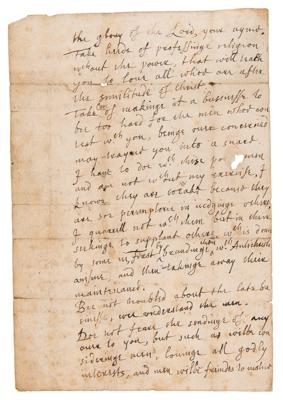 the glory of the Lord, your ayme.
Take heede of professinge religion
without the power, that will teach
you to love all whoe are after
the similitude of Christ.
Take care of makinge it a businesse to
bee too hard for the men whoe con
test with you, beinge over concerned
may trayne you into a snare.
I have to doe with these poore men
and am not without my exercise, I
knowe they are weake because they
are soe peremptorie in judginge others.
I quarrell not with them but in their
seekinge to supplant others, which is done
by some, first by brandinge them with Antichristian
and then takinge away their
maintenance.
Bee not troubled about the late bu
sinesse, wee understand the men.
Doe not feare the sendinge of any
over to you, but such as wilbe con
sideringe men, lovinge all godly
interests, and men wilbe frindes to